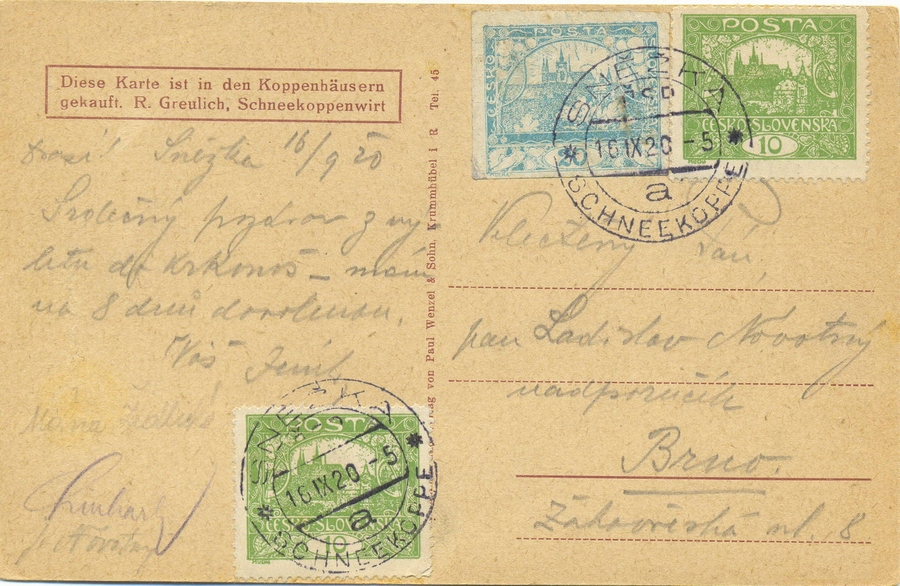 Diese Karte ist in den Koppenhäusern
gekauft. R. Greulich, Schneekoppenwirt
Sněžka 16/9 20
Srdečný pozdrav z vý
letu do Krkonoš – mám
na 8 dnů dovolenou.
Váš
Verlag von Paul Wenzel & Sohn, Krummhübel i R Tel. 45
POSTA
ČESKO-SLOVENSKÁ
20
POSTA
ČESKO-SLOVENSKÁ
10
SNĚŽKA
16 IX 20 - 5
a
SCHNEEKOPPE
Velectěný Pan,
pan Ladislav Novotný
nadporučík
Brno.
ul. 8
POSTA
ČESKO-SLOVENSKÁ
10
SNĚŽKA
16 IX 20 - 5
a
SCHNEEKOPPE
Novotný